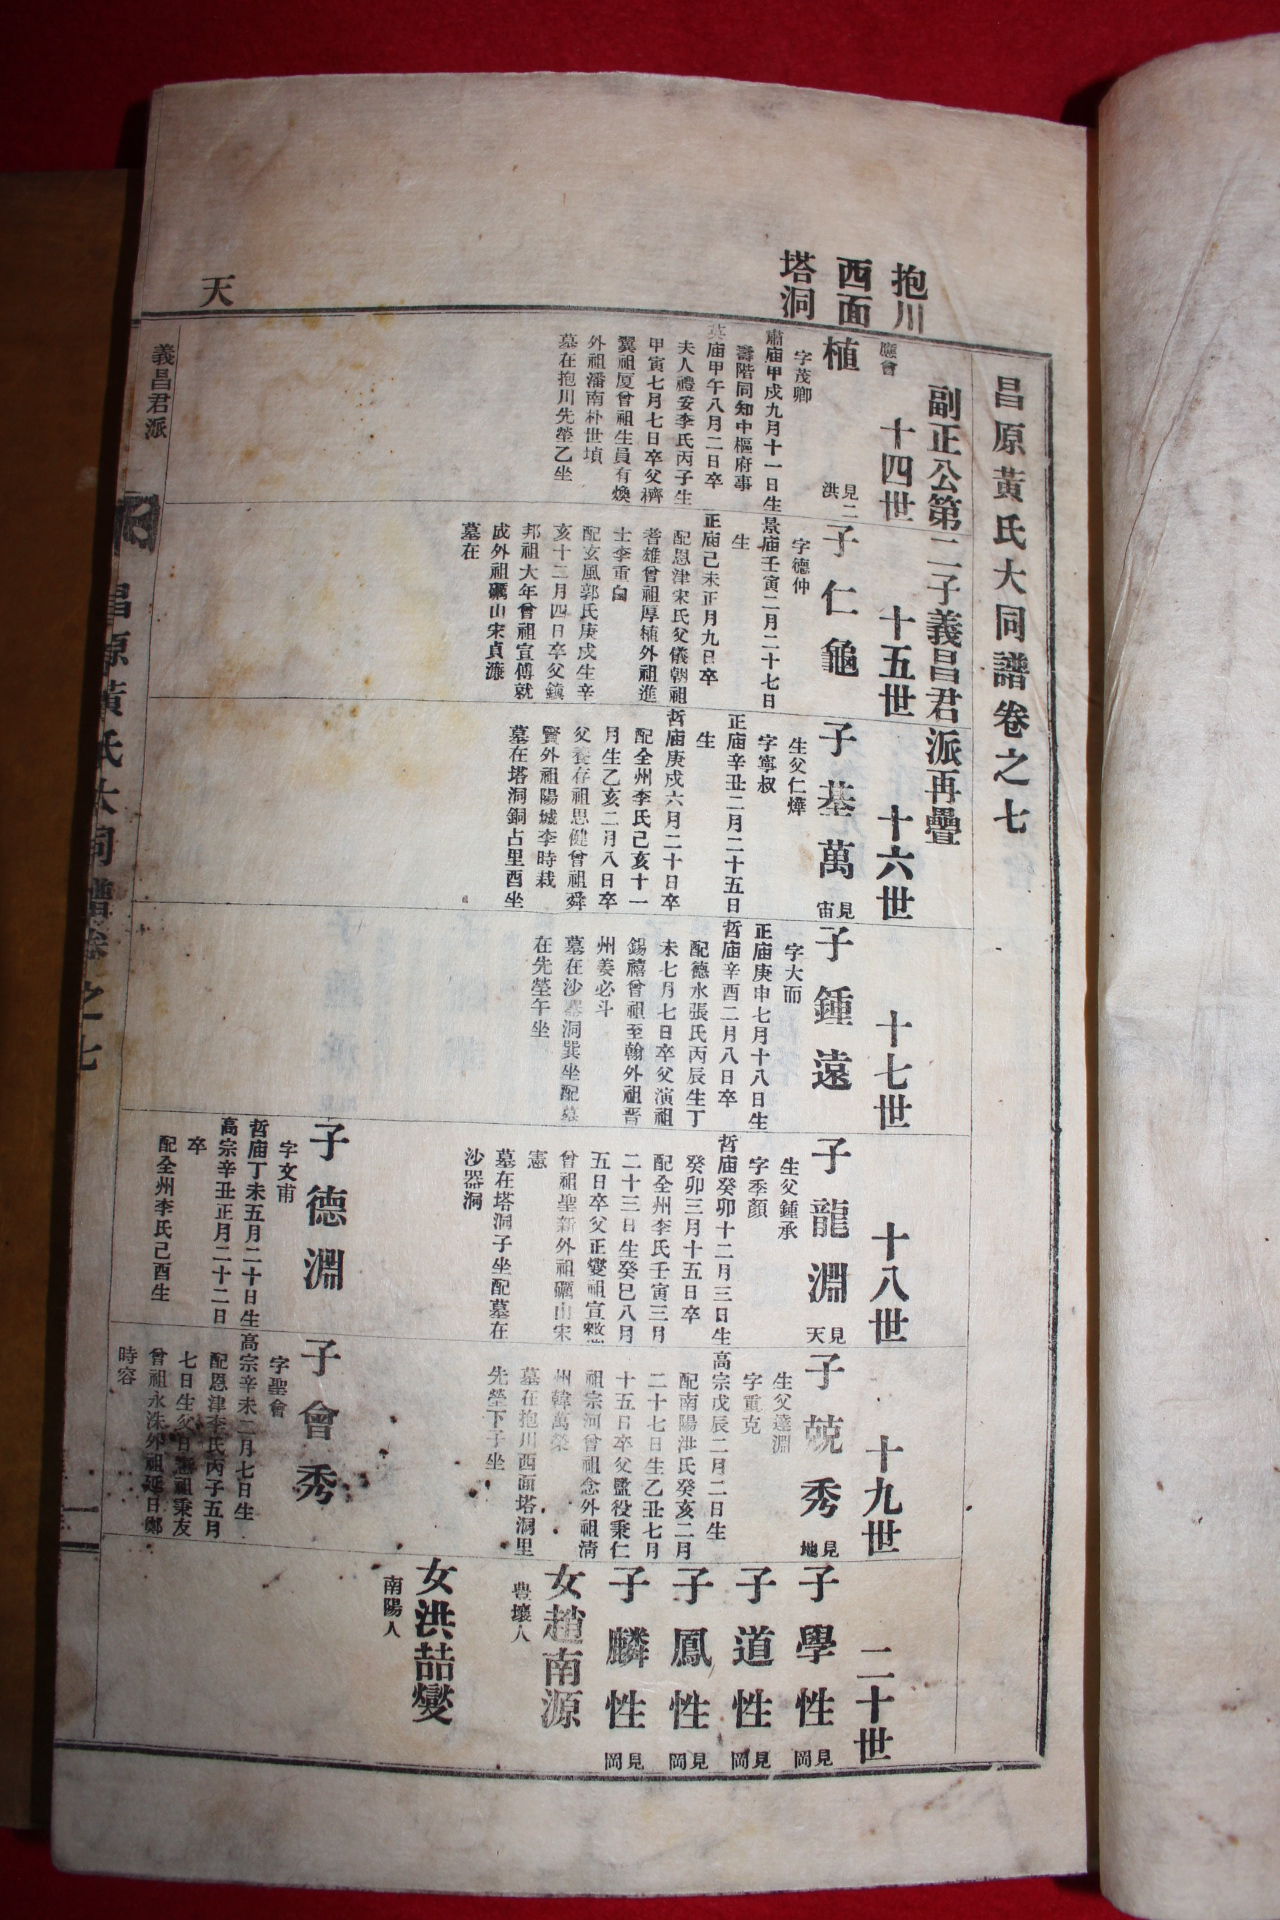 昌原黃氏大同譜卷之七
副正公第二子義昌君派再疊
抱川
西面
塔洞
天
十四世
應會
植
見二
洪
字茂卿
肅庙甲戌九月十一日生
壽階同知中樞府事
英庙甲午八月二日卒
夫人禮安李氏丙子生
甲寅七月七日卒父濟
翼祖厦曾祖生員有煥
外祖潘南朴世墳
墓在抱川先塋乙坐
十五世
子仁龜
字德仲
景庙壬寅二月二十七日
生
正庙己未正月九日卒
配恩津宋氏父儀朝祖
耆雄曾祖厚植外祖進
士李重白
配玄風郭氏庚戌生辛
亥十二月四日卒父鎮
邦祖大年曾祖宣傳就
成外祖礪山宋貞濂
墓在
十六世
子基萬
見宙
生父仁燁
字寧叔
正庙辛丑二月二十五日
生
哲庙庚戌六月二十日卒
配全州李氏己亥十一
月生乙亥二月八日卒
父養存祖思健曾祖舜
賢外祖陽城李時栽
墓在塔洞銅占里酉坐
十七世
子鍾遠
字大而
正庙庚申七月十八日生
哲庙辛酉二月八日卒
配德水張氏丙辰生丁
未七月七日卒父演祖
錫禧曾祖至翰外祖晋
州姜必斗
墓在沙器洞巽坐配墓
在先塋午坐
十八世
子龍淵
見天
生父鍾承
字季顔
哲庙癸卯十二月三日生
癸卯三月十五日卒
配全州李氏壬寅三月
二十三日生癸巳八月
五日卒父正燮祖宣
曾祖聖新外祖礪山宋
憲
墓在塔洞子坐配墓在
沙器洞
子德淵
字文甫
哲庙丁未五月二十日生
高宗辛丑正月二十二日
卒
配全州李氏己酉生
十九世
子兢秀
見地
生父達淵
字重克
高宗戊辰二月二日生
配南陽洪氏癸亥二月
二十七日生乙丑七月
十五日卒父監役秉仁
祖宗河曾祖念外祖淸
州韓萬榮
墓在抱川西面塔洞里
先塋下子坐
子會秀
字聖會
高宗辛未二月七日生
配恩津李氏丙子五月
七日生父祖秉友
曾祖永洙外祖延日鄭
時容
二十世
子學性
見岡
子道性
見岡
子鳳性
見岡
子麟性
見岡
女趙南源
豊壤人
女洪喆燮
南陽人
義昌君派
昌原黃氏大同譜卷之七